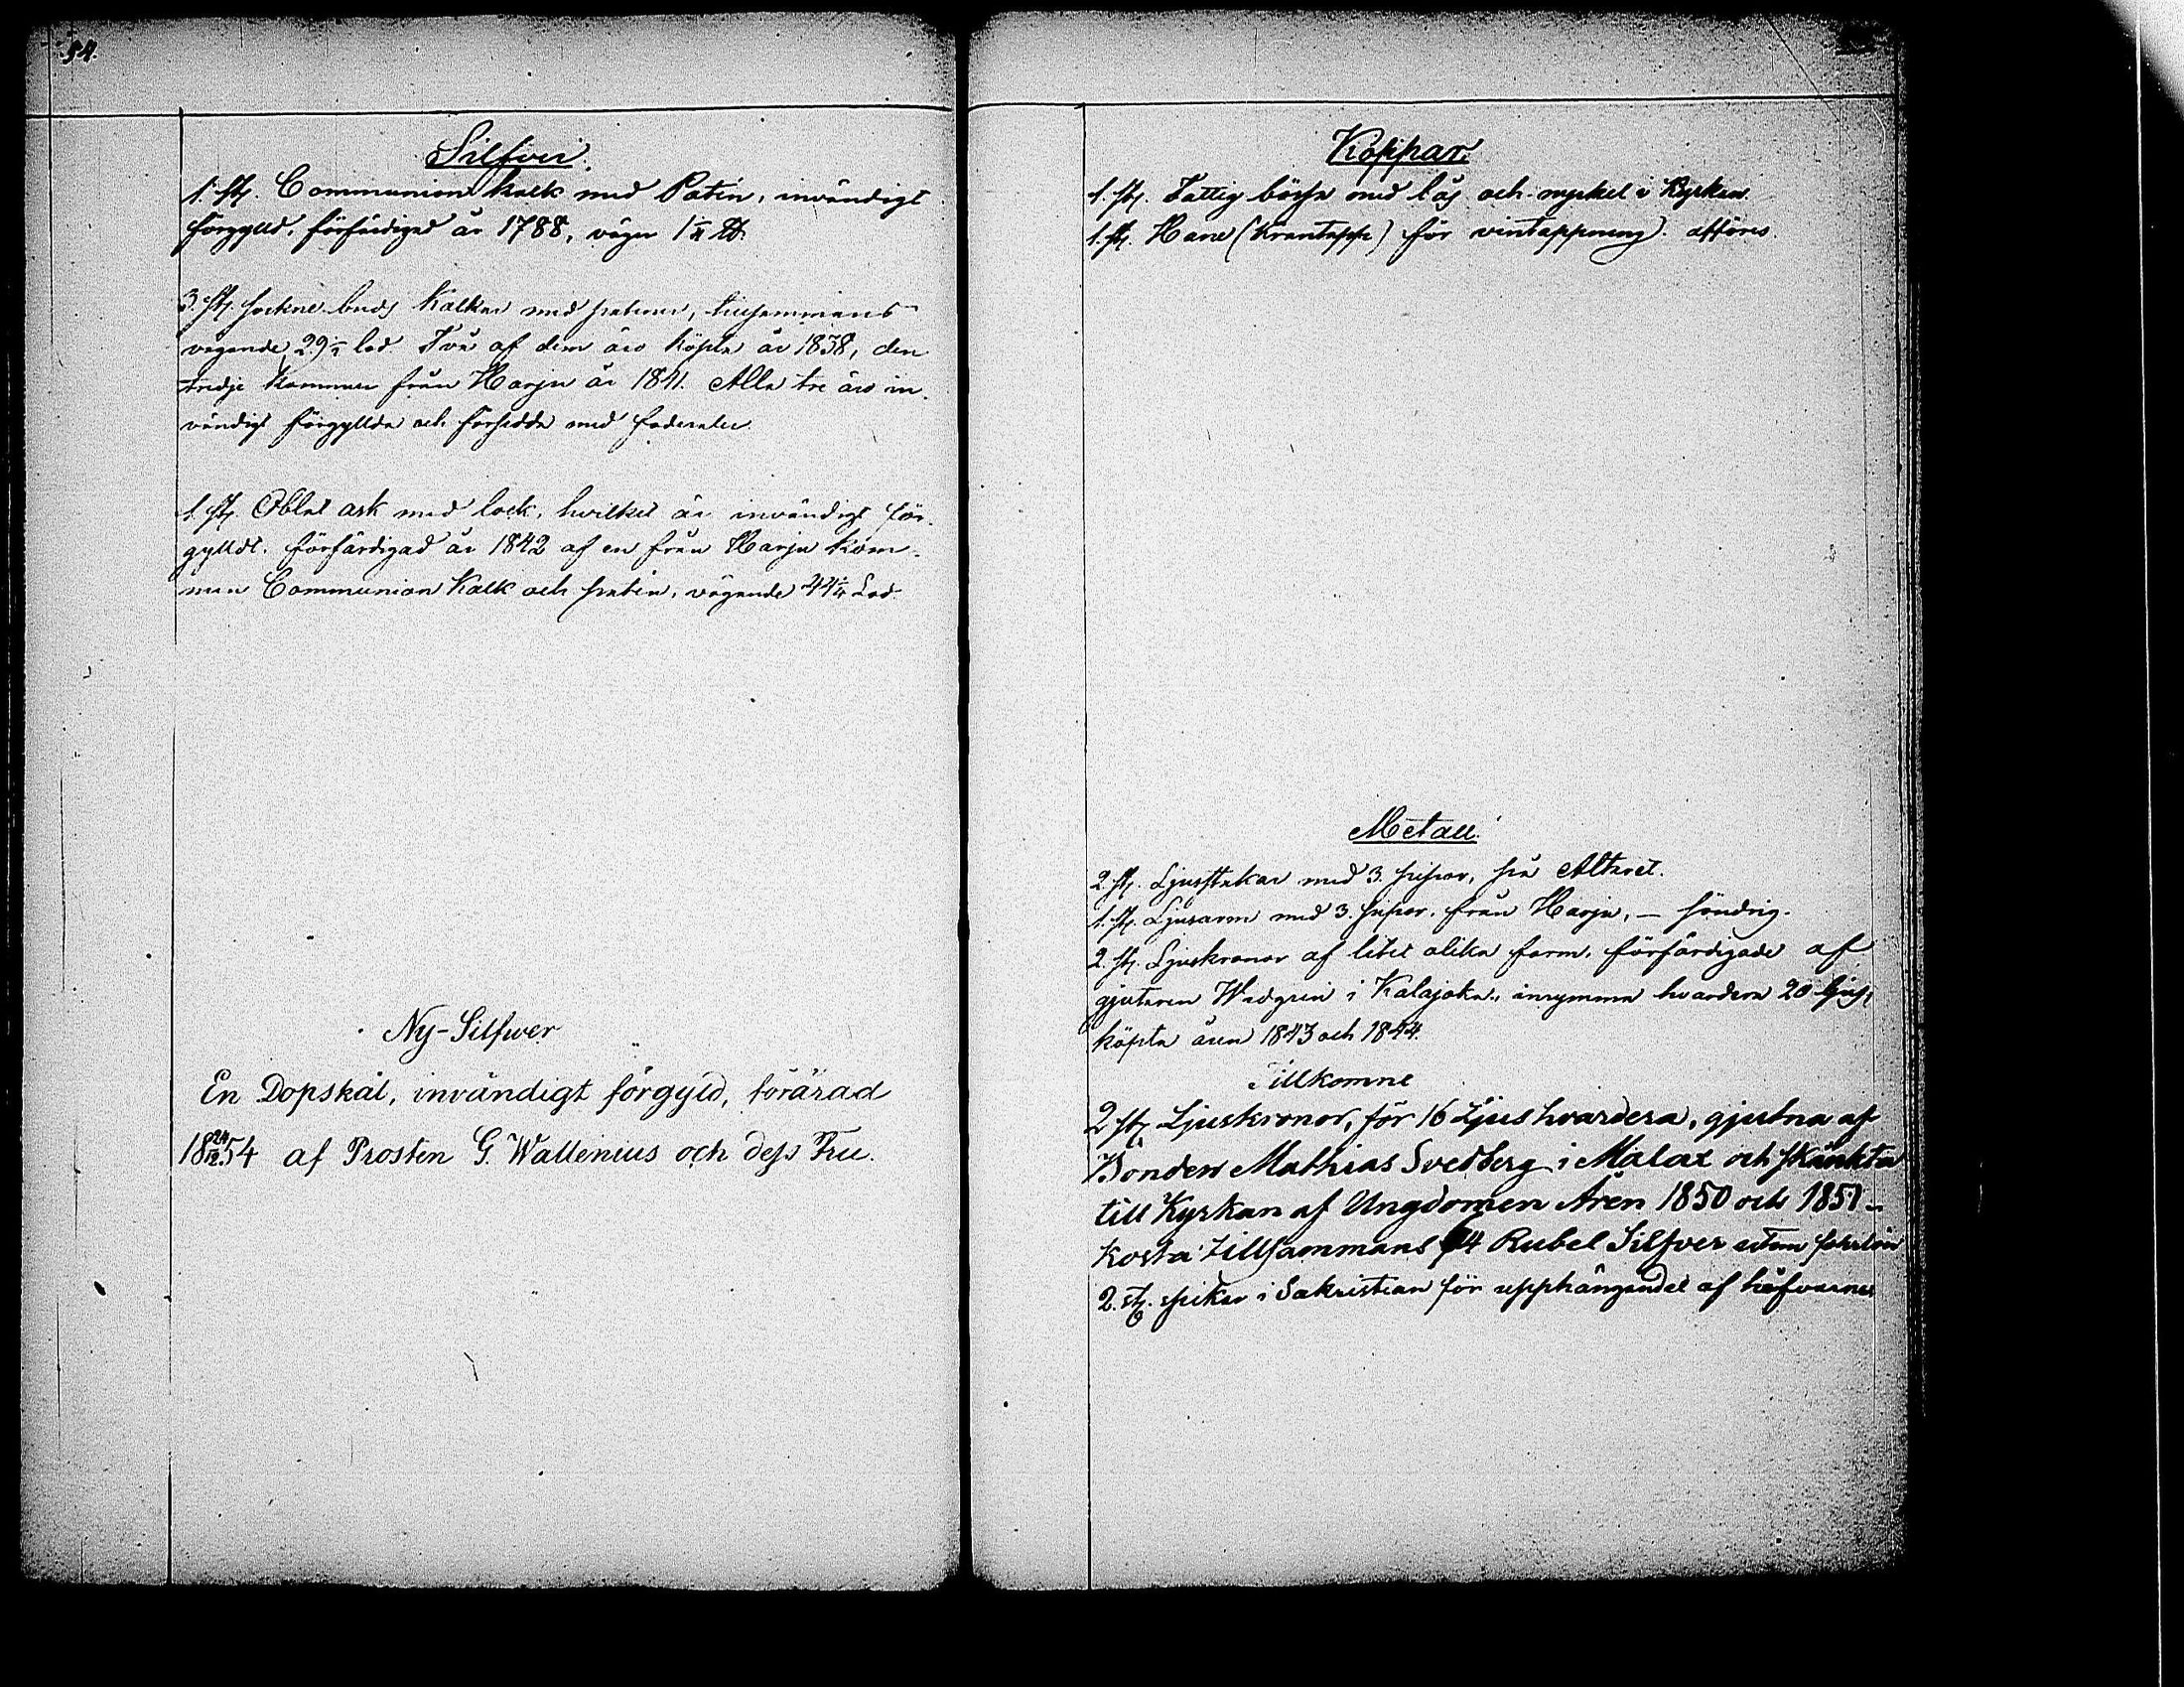 54.
Silfver.
1. st. Communion kalk med Patén, invändigt
förgylld, förfärdigad år 1788, väger 1 ℔.
3. st. sockne buds Kalkar med patener, tillsammans
vägande 29 lod. Två af dem äro köpta år 1838, den
tredje kommen från Harju år 1841. Alla tre äro in-
vändigt förgyllda och försedda med foderaler.
1. st. Oblat ask med lock, hvilket är invändigt för-
gylldt. förfärdigad år 1842 af en från Harju kom-
men Communion Kalk och patén, vägande 44 1/4 Lod.
Ny-Silfwer
En Dopskål, invändigt förgyld, förärad
18 24/12 54 af Prosten G. Wallenius och dess Fru.
Koppar.
1. st. Fattig bössa med lås och nyckel i Kyrkan.
1. st. Hane (Krantapp) för vintappning. afföres.
Metall.
2. st. Ljusstakar med 3. pipor, på Altaret.
1. st. Ljusarm med 3. pipor, från Harju, — söndrig.
2. st. Ljuskronor af litet olika form, förfärdigade af
gjutaren Widgrén i Kalajoki, inrymma hvardera 20 ljus,
köpta åren 1843 och 1844.
Tillkomne
2 st Ljuskronor, för 16 Ljus hvardera, gjutna af
Bonden Mathias Svedberg i Malax och skänkta
till Kyrkan af Ungdomen Åren 1850 och 1851 -
kosta tillsammans 4 Rubel Silfver utom forlön
2. st. spikar i Sakristian för upphängandet af håfvarne